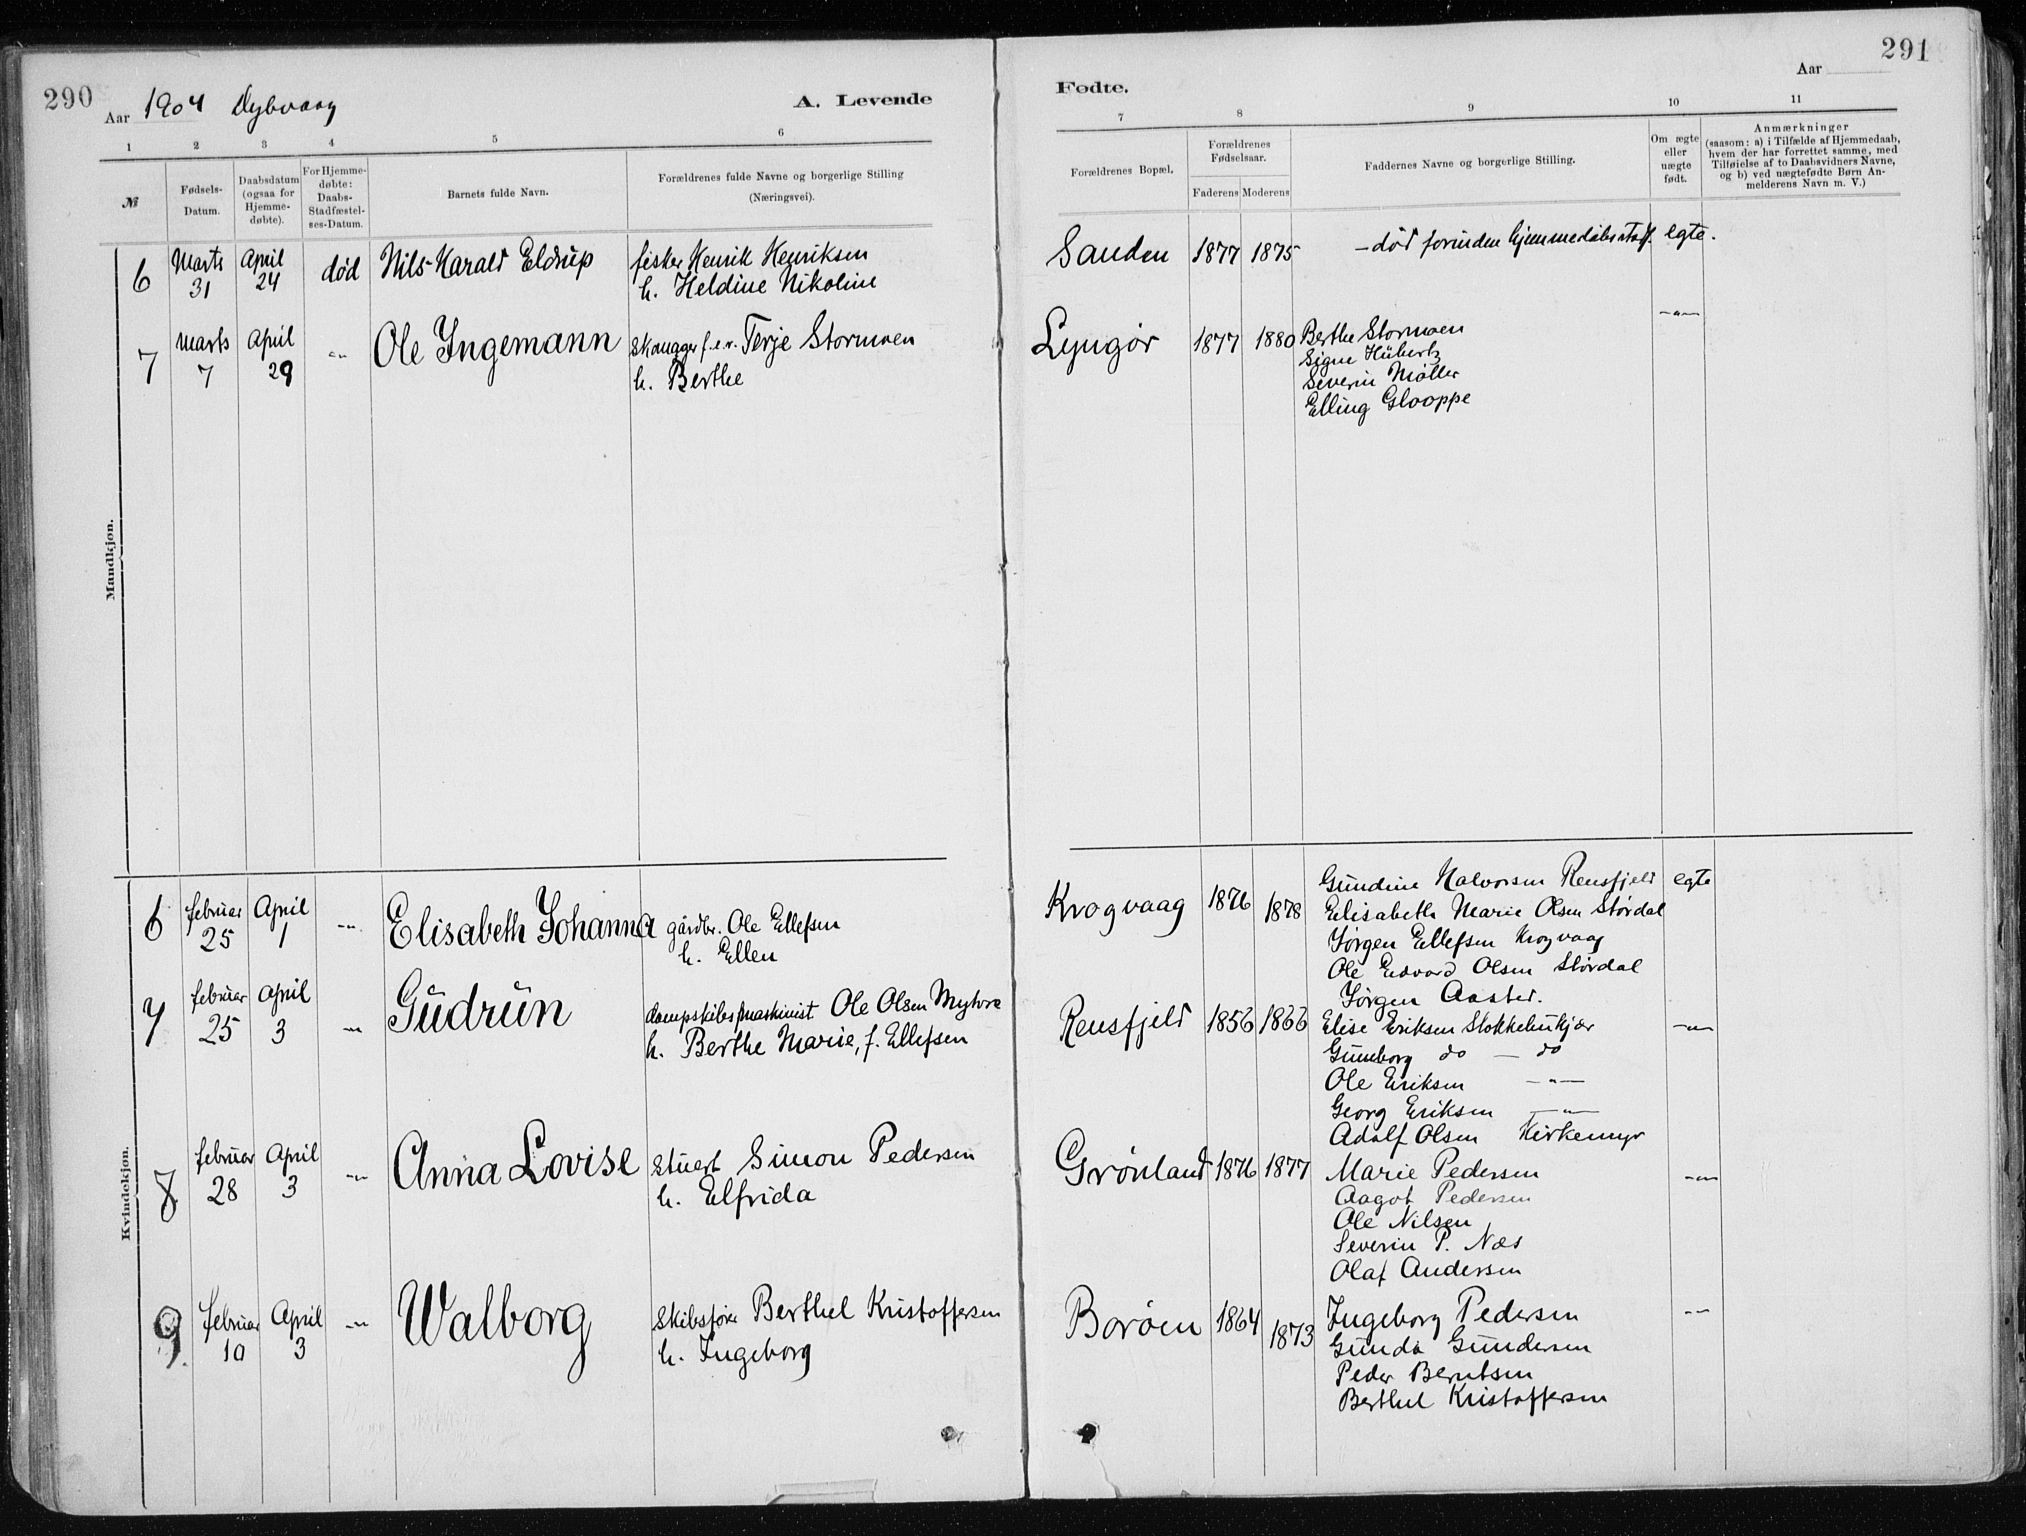 290
Aar 1904 Dybvaag
A. Levende
1 2 3 4 5 6
№
Fødsels-
Datum.
Daabsdatum
(ogsaa for
Hjemme-
døbte).
For Hjemme-
døbte:
Daabs-
Stadfæstel-
ses-Datum.
Barnets fulde Navn.
Forældrenes fulde Navne og borgerlige Stilling
(Næringsvei).
Mandkjøn.
6 Marts 31 April 24 død Nils Harald Eldrup fisker Henrik Henriksen
h. Heldine Nikoline
7 Marts 7 April 29 -"- Ole Ingemann Terje Stormoen
h. Berthe
Kvindekjøn.
6 februar 25 April 1 -"- Elisabeth Johanna gårdbr. Ole Ellefsen
h. Ellen
7 februar 25 April 3 -"- Gudrun dampskibsmaskinist Ole Olsen Myhre
h. Berthe Marie, f. Ellefsen
8 februar 28 April 3 -"- Anna Lovise Stuert Simon Pedersen
h. Elfrida
9 februar 10 April 3 -"- Walborg Skibsfører Berthel Kristoffersen
h. Ingeborg
291
Aar
Fødte.
7 8 9 10 11
Forældrenes Bopæl.
Forældrenes
Fødselsaar.
Faderens Moderens
Faddernes Navne og borgerlige Stilling.
Om ægte
eller
uægte
født.
Anmærkninger
(saasom: a) i Tilfælde af Hjemmedaab,
hvem der har forrettet samme, med
Tilføielse af to Daabsvidners Navne,
og b) ved uægtefødte Børn An-
melderens Navn m. V.)
Sanden 1877 1875 - død forinden hjemmedåbs staff. egte.
Lyngør 1877 1880 Berthe Stormoen -"-
Signe Hübertz
Severin Møller
Elling Glooppe
Krogvaag 1876 1878 Gundine Halvorsen Rensfjeld egte
Elisabeth Marie Olsen Størdal
Jørgen Ellefsen Krogvaag
Ole Edvard Olsen Størdal
Jørgen Aaster.
Rensfjeld 1856 1866 Elise Eriksen -"-
Guneborg do - do
Ole Eriksen -"-
Georg Eriksen -"-
Adolf Olsen Kirkemyr
Grønland 1876 1877 Marie Pedersen -"-
Aagot Pedersen
Ole Nilsen
Severin P. Næs
Olaf Andersen
Borøen 1864 1873 Ingeborg Pedersen -"-
Gunda Gundersen
Peder Berntsen
Berthel Kristoffersen